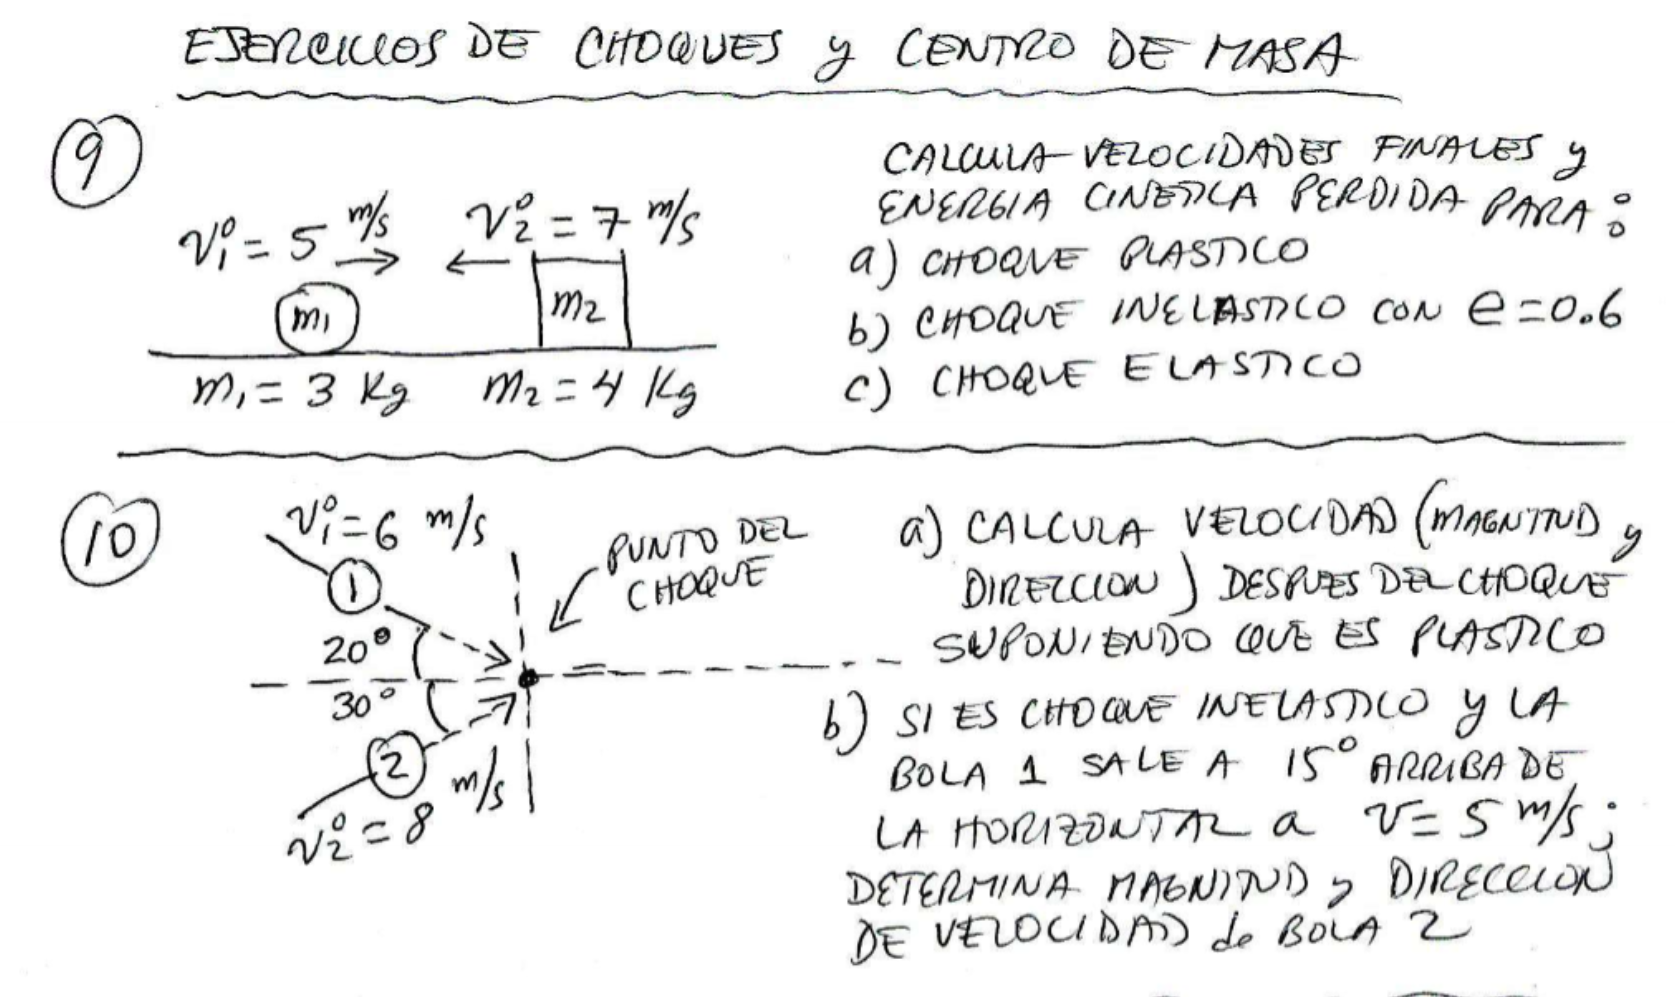 EJERCICIOS DE CHOQUES y CENTRO DE MASA
9
CALCULA VELOCIDADES FINALES y
ENERGIA CINETICA PERDIDA PARA:
a) CHOQUE PLASTICO
b) CHOQUE INELASTICO CON e=0.6
c) CHOQUE ELASTICO
v₁⁰ = 5 m/s
v₂⁰ = 7 m/s
m₁
m₂
m₁ = 3 Kg
m₂ = 4 Kg
10
v₁⁰ = 6 m/s
1
20°
30°
2
v₂⁰ = 8 m/s
PUNTO DEL
CHOQUE
a) CALCULA VELOCIDAD (MAGNITUD y
DIRECCION) DESPUES DEL CHOQUE
SUPONIENDO QUE ES PLASTICO
b) SI ES CHOQUE INELASTICO y LA
BOLA 1 SALE A 15° ARRIBA DE
LA HORIZONTAL a v = 5 m/s;
DETERMINA MAGNITUD y DIRECCION
DE VELOCIDAD de BOLA 2